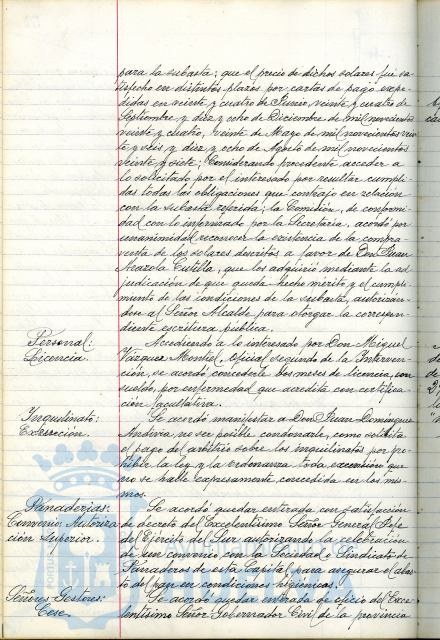 para la subasta; que el precio de dichos solares fué sa-
tisfecho en distintos plazos por cartas de pago expe-
didas en veinte y cuatro de Junio, veinte y cuatro de
Septiembre y diez y ocho de Diciembre de mil novecientos
veinte y cuatro, veinte de Mayo de mil novecientos vein-
te y seis y diez y ocho de Agosto de mil novecientos
veinte y siete; Considerando procedente acceder a
lo solicitado por el interesado por resultar cumpli-
das todas las obligaciones que contrajo en relación
con la subasta referida; la Comisión, de conformi-
dad con lo informado por la Secretaría, acordó por
unanimidad reconocer la existencia de la compra-
venta de los solares descritos a favor de Don Juan
Castilla, que los adquirió mediante la ad-
judicación de que queda hecho mérito y el cumpli-
miento de las condiciones de la subasta, autorizán-
dose al Señor Alcalde para otorgar la correspon-
diente escritura pública.
Personal:
Licencia.
Accediendo a lo interesado por Don Miguel
Vázquez Montiel, Oficial segundo de la Interven-
ción, se acordó concederle dos meses de licencia, con
sueldo, por enfermedad que acredita con certifica-
ción facultativa.
Inquilinato:
Exención.
Se acordó manifestar a Don Juan Domínguez
no ser posible condonarle, como solicita
el pago del arbitrio sobre los inquilinatos por pro-
hibir la ley y la ordenanza toda exención que
no se halle expresamente concedida en los mis-
mos.
Panaderías:
Convenio. Autoriza
ción superior.
Se acordó quedar enterada con satisfacción
de decreto del Excelentísimo Señor General Jefe
del Ejército del Sur autorizando la celebración
de un convenio con la Sociedad o Sindicato de
Panaderos de esta Capital para asegurar el abas-
to del pan en condiciones higiénicas.
Señores Gestores:
Cese.
Se acordó quedar enterada de oficio del Exce-
lentísimo Señor Gobernador Civil de la provincia